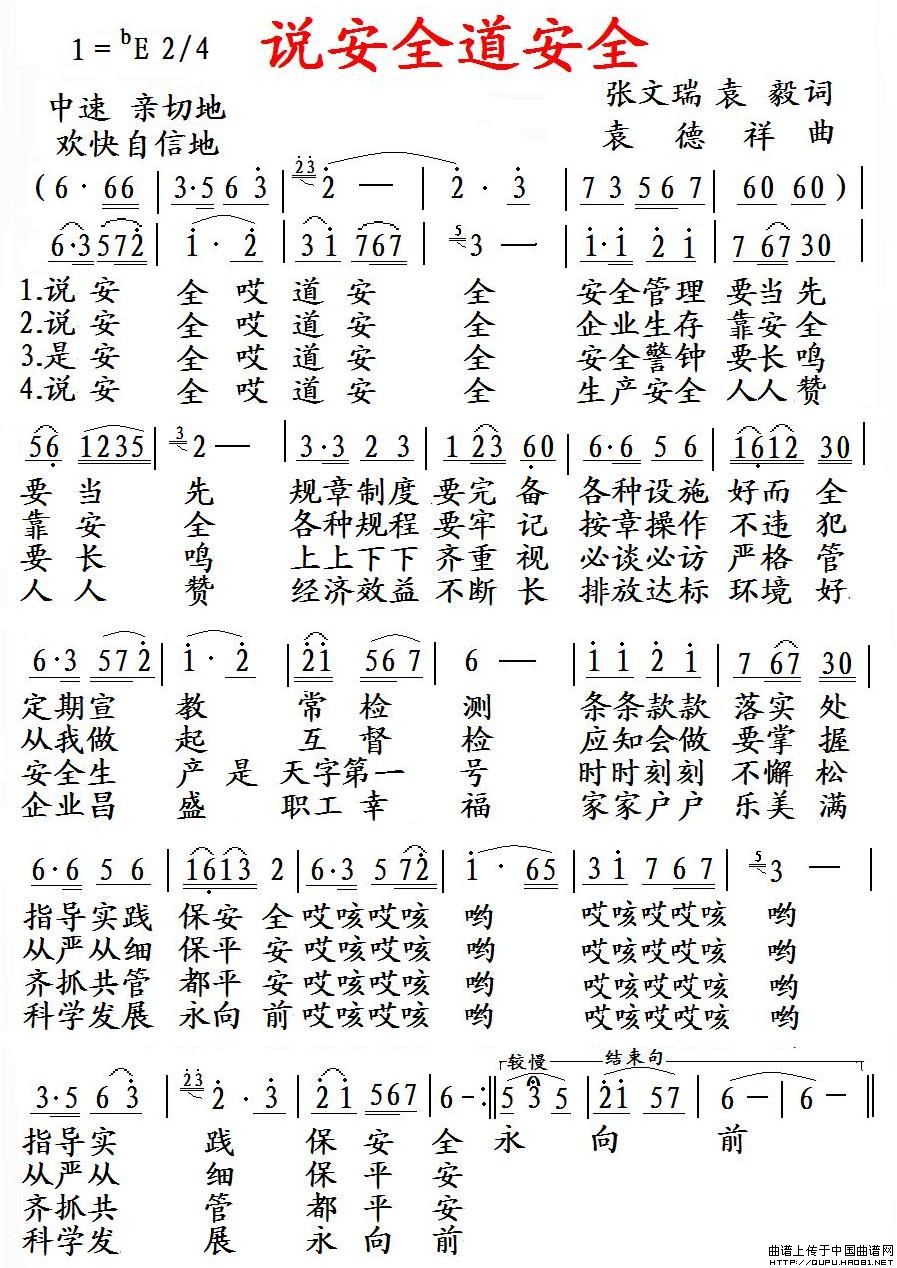 说安全道安全
1=ᵇE 2/4
中速 亲切地
欢快自信地
张文瑞 袁 毅词
袁 德 祥 曲
(6· 66 | 3·5 6 3 | 23 2 — | 2· 3 | 7 3 5 6 7 | 60 60) |
6·3 572 | 1· 2 | 31 767 | 5 3 — | 1·1 2 1 | 7 67 30 |
1.说 安 全 哎 道 安 全 安全管理 要当先
2.说 安 全 哎 道 安 全 企业生存 靠安全
3.是 安 全 哎 道 安 全 安全警钟 要长鸣
4.说 安 全 哎 道 安 全 生产安全 人人赞
56 1235 | 3 2 — | 3·3 2 3 | 1 23 60 | 6·6 5 6 | 1612 30 |
要 当 先 规章制度 要完 备 各种设施 好而 全
靠 安 全 各种规程 要牢 记 按章操作 不违 犯
要 长 鸣 上上下下 齐重 视 必谈必访 严格 管
人 人 赞 经济效益 不断 长 排放达标 环境 好
6·3 572 | 1· 2 | 21 56 7 | 6 — | 1 1 2 1 | 7 67 30 |
定期宣 教 常 检 测 条条款款 落实 处
从我做 起 互 督 检 应知会做 要掌 握
安全生 产 是 天字第一 号 时时刻刻 不懈 松
企业昌 盛 职工幸 福 家家户户 乐美 满
6·6 5 6 | 1613 2 | 6·3 5 72 | 1· 65 | 31 7 67 | 5 3 — |
指导实践 保安 全 哎咳哎咳 哟 哎咳哎哎咳 哟
从严从细 保平 安 哎咳哎咳 哟 哎咳哎哎咳 哟
齐抓共管 都平 安 哎咳哎咳 哟 哎咳哎哎咳 哟
科学发展 永向 前 哎咳哎咳 哟 哎咳哎哎咳 哟
较慢 结束句
3·5 6 3 | 23 2· 3 | 2 1 567 | 6 — :‖ 5 3 5 | 2·1 57 | 6 — | 6 — ‖
指导实 践 保 安 全 永 向 前
从严从 细 保 平 安
齐抓共 管 都 平 安
科学发 展 永 向 前
曲谱上传于中国曲谱网
HTTP://QUPU.HAO81.NET